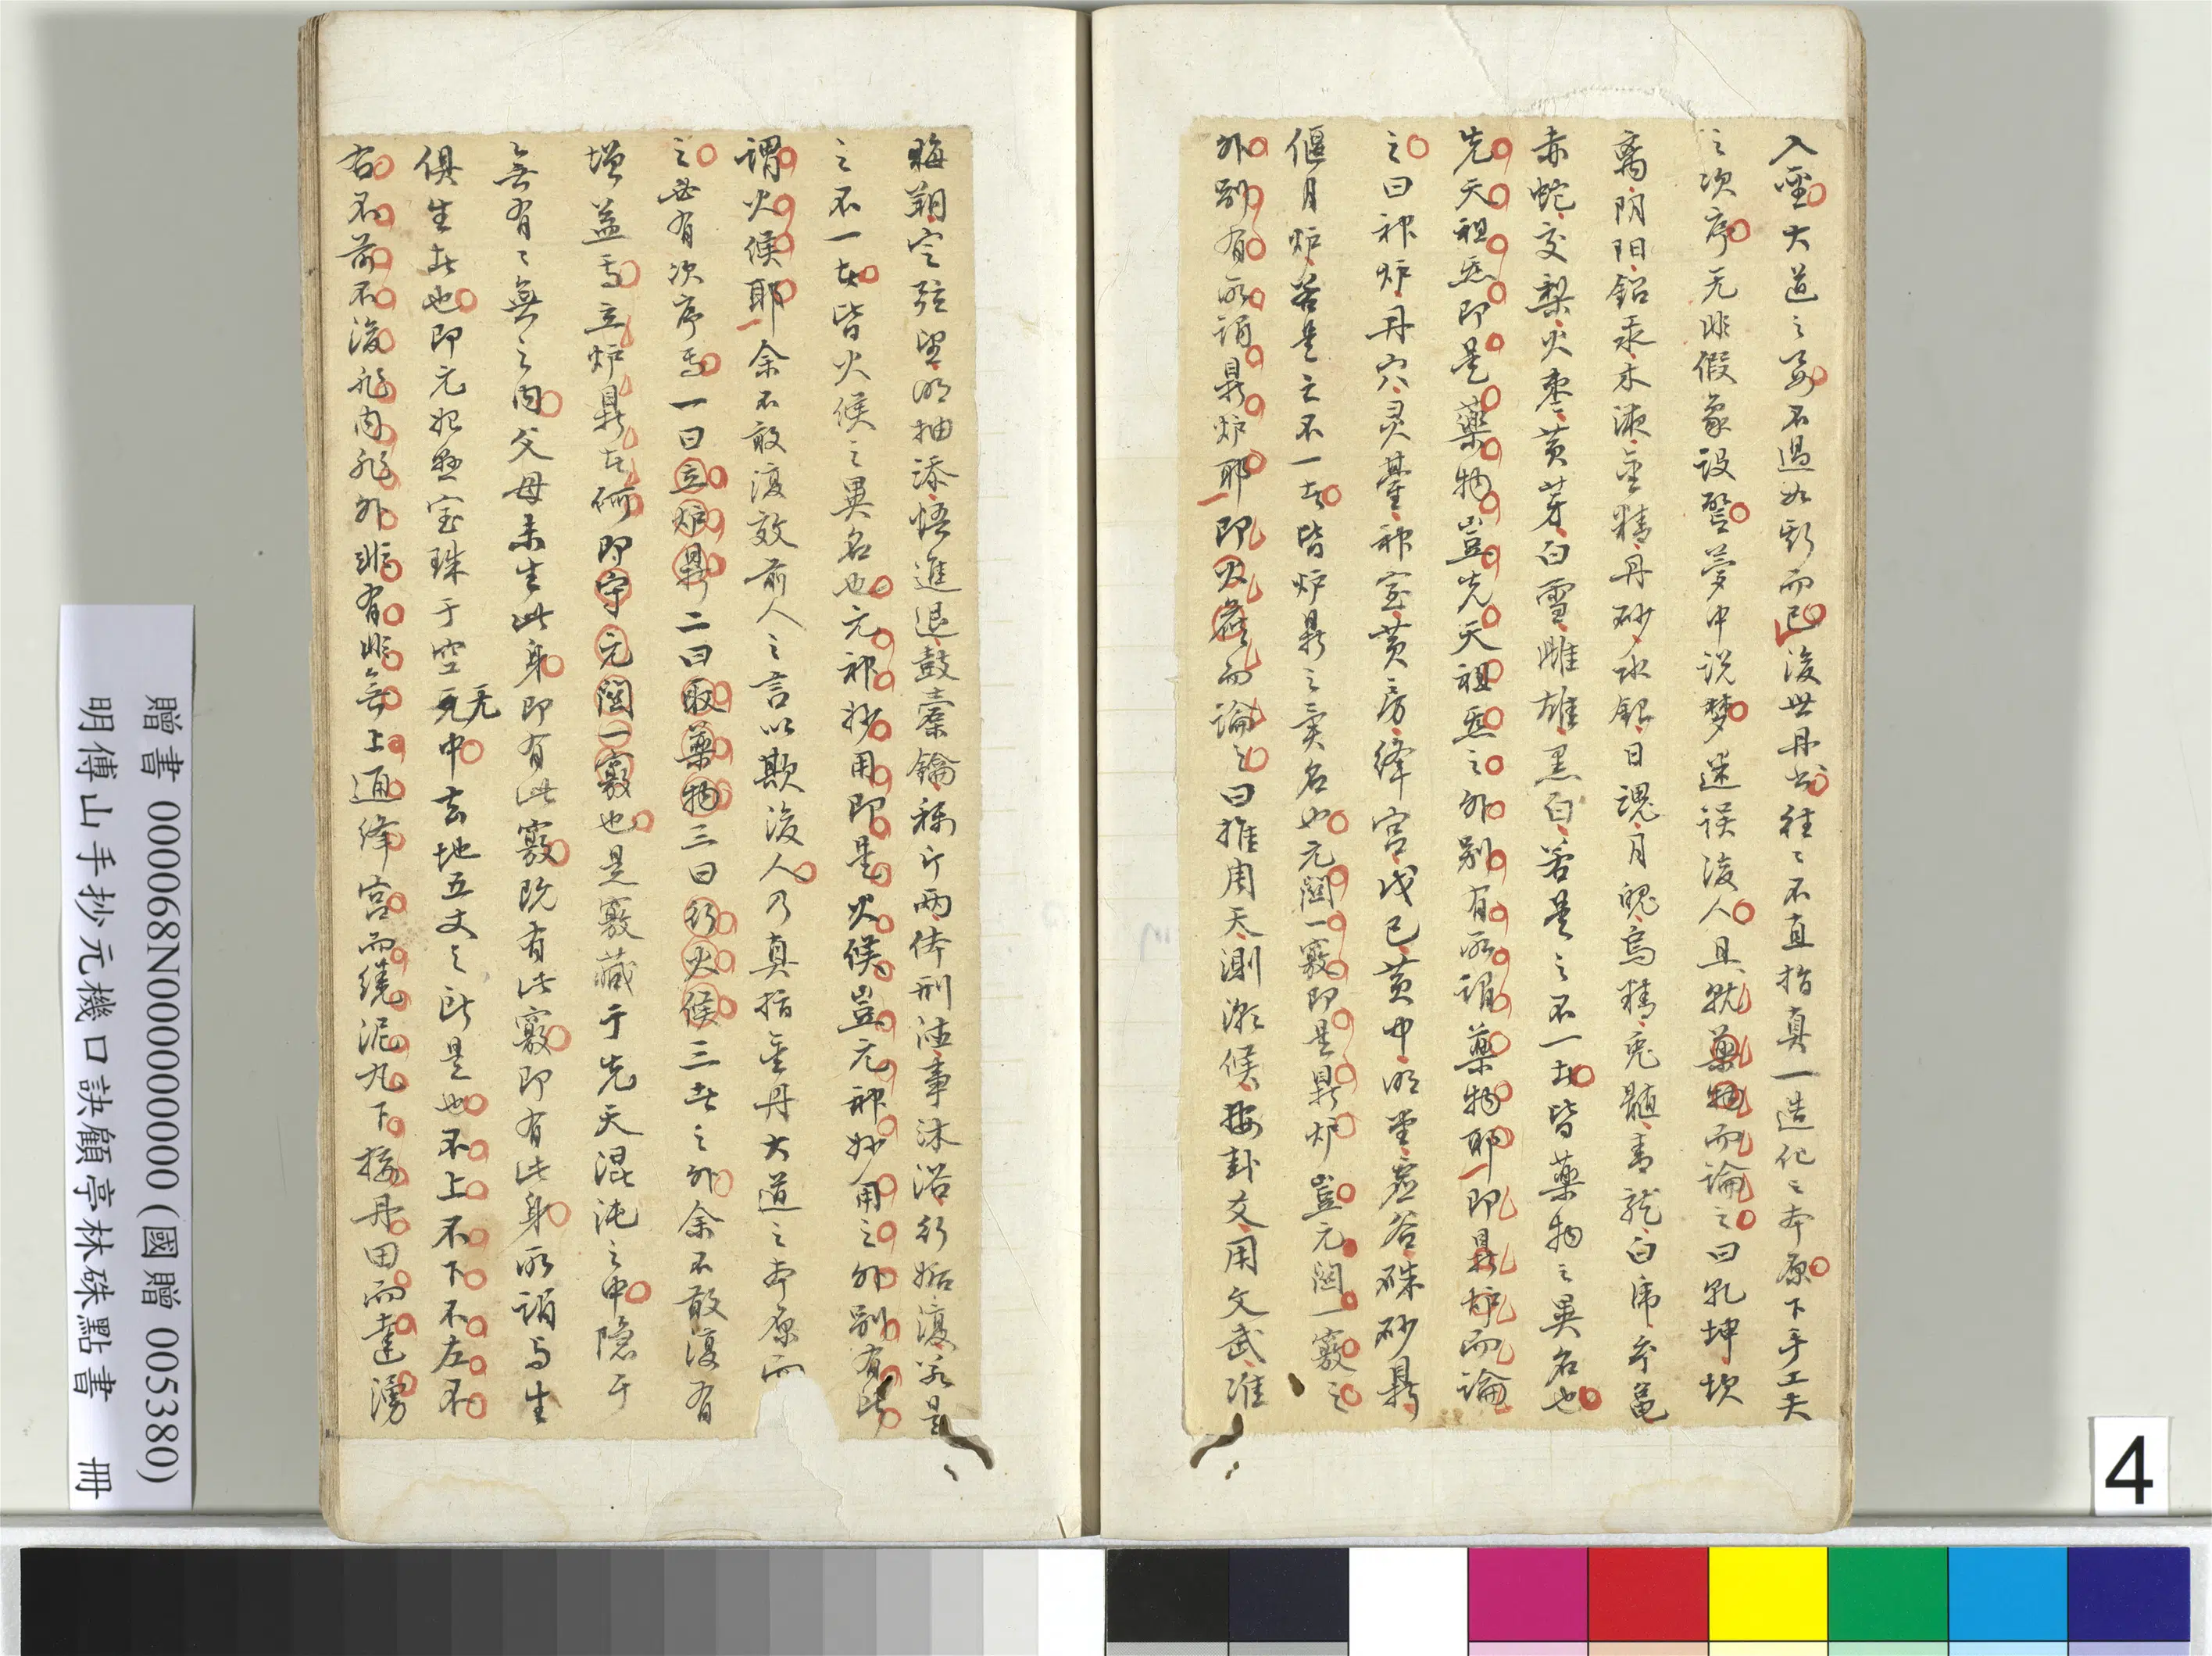 入聖大道之要不過如斯而已後世丹書往〻不直指真一造化之本原下手工夫
之次序无非假象设譬夢中说梦迷误後人且就藥物而論之曰乹坤坎
离阴阳鉛汞木液金精丹砂水銀日魂月魄烏精兎髓青龍白虎
赤蛇交梨火棗黄芽白雪雌雄黑白若是之不一者皆藥物之異名也
先天祖炁即是藥物豈先天祖炁之外别有所谓藥物耶即鼎炉而論
之曰神炉丹穴灵臺神室黄房絳宫戊己黄中明堂虚谷硃砂鼎
偃月炉若是之不一者皆炉鼎之異名也元關一竅即是鼎炉豈元關一竅之
外别有所谓鼎炉耶即火候而論之曰推周天測潮候按卦爻用文武准
晦朔定弦望明抽添悟進退鼓橐籥称斤两体刑德事沐浴行姤復若是
之不一者皆火候之異名也元神妙用即是火候豈元神妙用之外别有所
謂火候耶余不敢復效前人之言以欺後人乃真指金丹大道之本原而
之必有次序焉一曰立炉鼎二曰取藥物三曰行火候三者之外余不敢復有
增益焉立炉鼎者何即守元關一竅也是竅藏于先天混沌之中隐于
無有〻無之内父母未生此身即有此竅既有此竅即有此身所谓与生
俱生者也即元始悬宝珠于空无中去地五丈之所是也不上不下不左不
无
右不前不後非内非外非有非無上通絳宫而繞泥丸下接丹田而達湧
贈書 000068N000000000 (國贈 005380)
明傅山手抄元機口訣顧亭林硃點書 冊
4